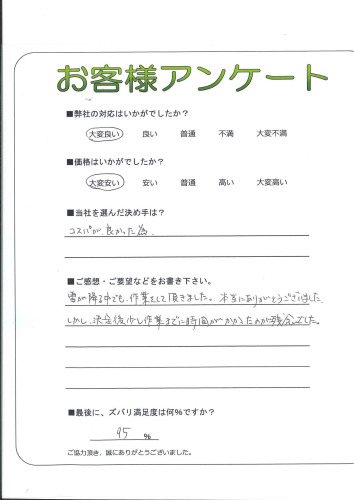 お客様アンケート
■弊社の対応はいかがでしたか？
大変良い 良い 普通 不満 大変不満
■価格はいかがでしたか？
大変安い 安い 普通 高い 大変高い
■当社を選んだ決め手は？
コスパが良かった為
■ご感想・ご要望などをお書き下さい。
雪が降る中でも、作業をして頂きました。本当にありがとうございました
しかし、決定後少し作業までに時間がかかったのが残念でした。
■最後に、ズバリ満足度は何％ですか？
95 %
ご協力頂き、誠にありがとうございました。